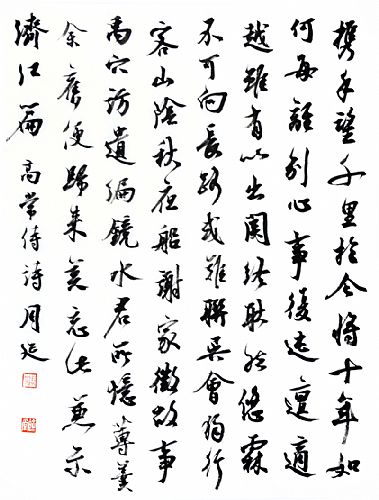 攜手望千里於今將十年如
何每離別心事復迍邅適
越雖有以出關終耿然悠霖
不可向長路或難聯吳會獨行
客山陰秋夜船謝家徵故事
禹穴訪遺編鏡水君所憶蓴羹
余舊便歸來莫忘此兼示
濟江篇 高常侍詩 周延